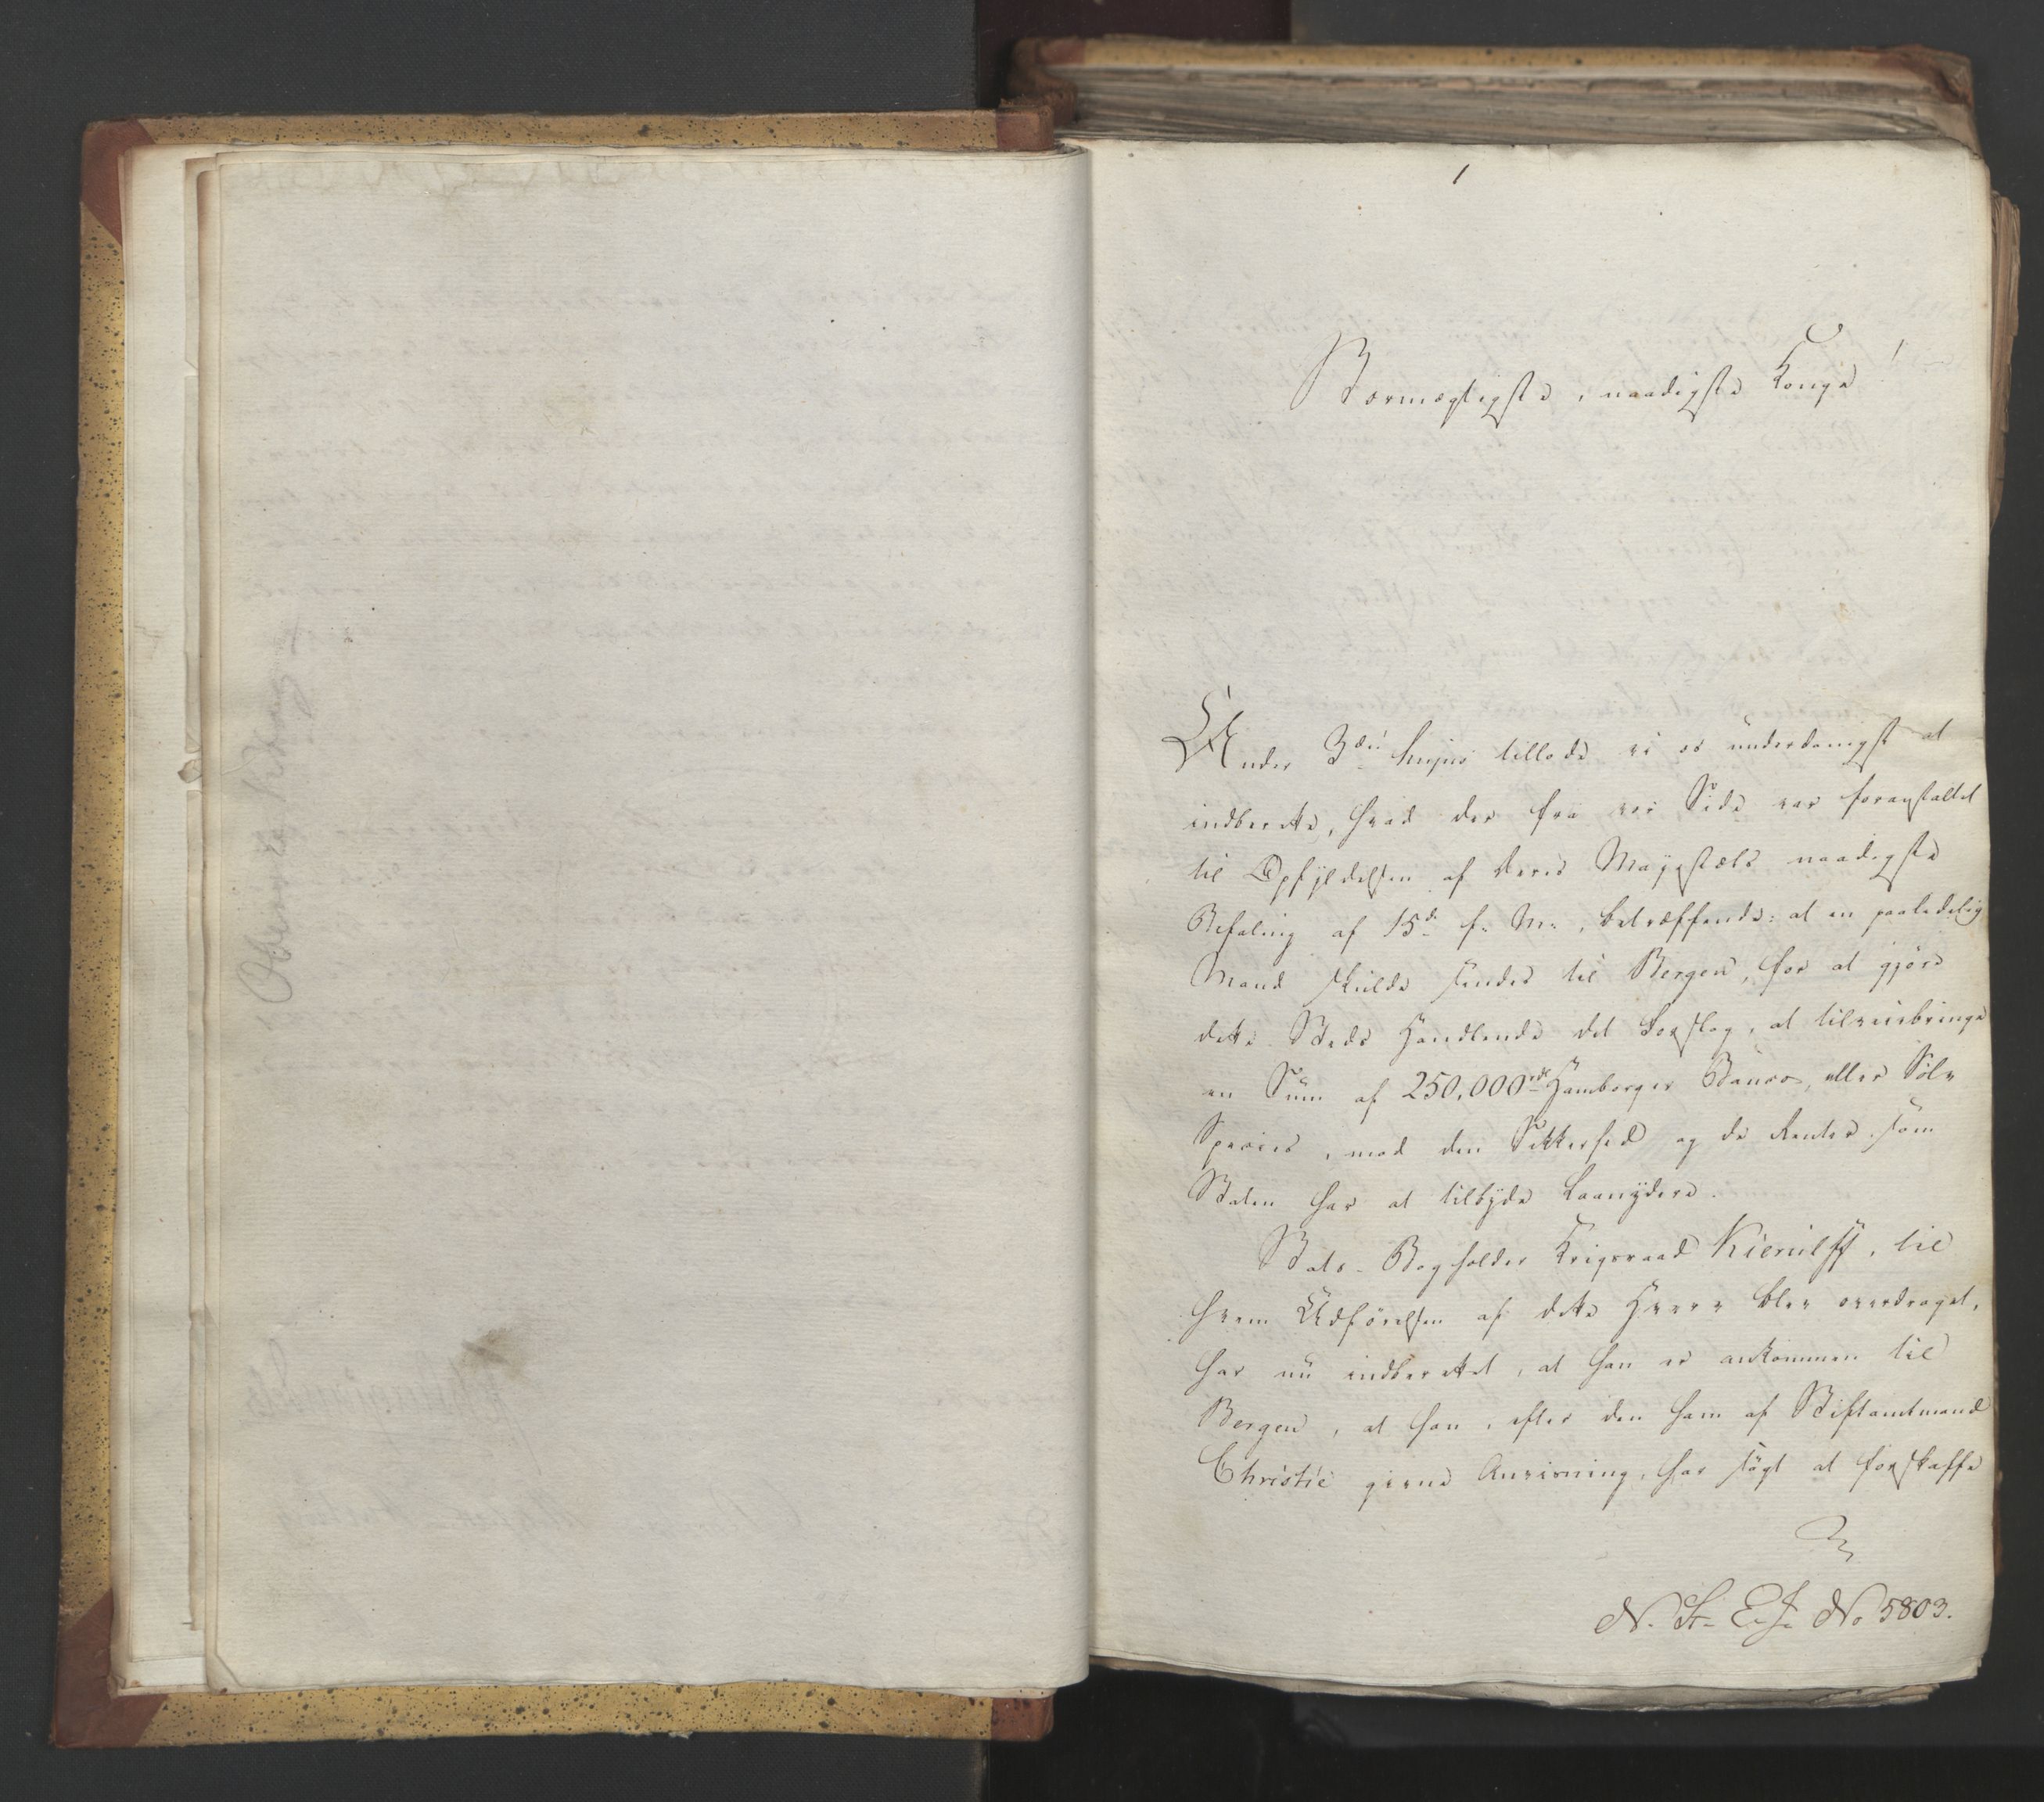 1
Stormægtigste, naadigste Konge!
Under 3die hujus tillode vi os underdanigst at
indberette, hvad der fra vor Side var foranstaltet
til Opfyldelsen af Deres Majestæts naadigste
Befaling af 15de f. M., betræffende: at en paalidelig
Mand skulde sendes til Bergen, for at gjöre
dette Steds Handlende det Forslag, at tilveiebringe
en Sum af 250,000 rdr Hamborger Banco, eller Sölv
Species, mod den Sikkerhed og de Renter som
Staten har at tilbyde Laanydere.
Stats-Bogholder Krigsraad Kierulff, til
hvem Udförelsen af dette Hverv blev overdraget,
har nu indberettet, at han er ankommen til
Bergen, at han, efter den ham af Stiftamtmand
Christie givne Anviisning, har sögt at forskaffe
N. St. E. J. No 5803.